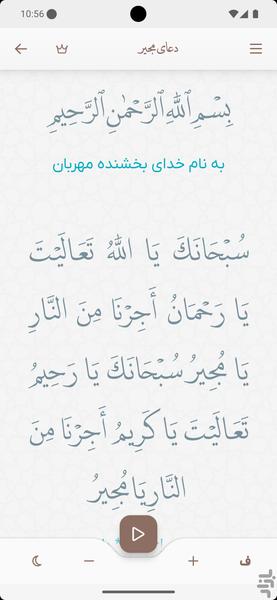 10:56
دعای مجیر
بِسْمِ ٱللَّهِ ٱلرَّحْمَٰنِ ٱلرَّحِيمِ
به نام خدای بخشنده مهربان
سُبْحَانَكَ يَا اللَّهُ تَعَالَيْتَ
يَا رَحْمَانُ أَجِرْنَا مِنَ النَّارِ
يَا مُجِيرُ سُبْحَانَكَ يَا رَحِيمُ
تَعَالَيْتَ يَا كَرِيمُ أَجِرْنَا مِنَ
النَّارِ يَا مُجِيرُ
ف
بازار